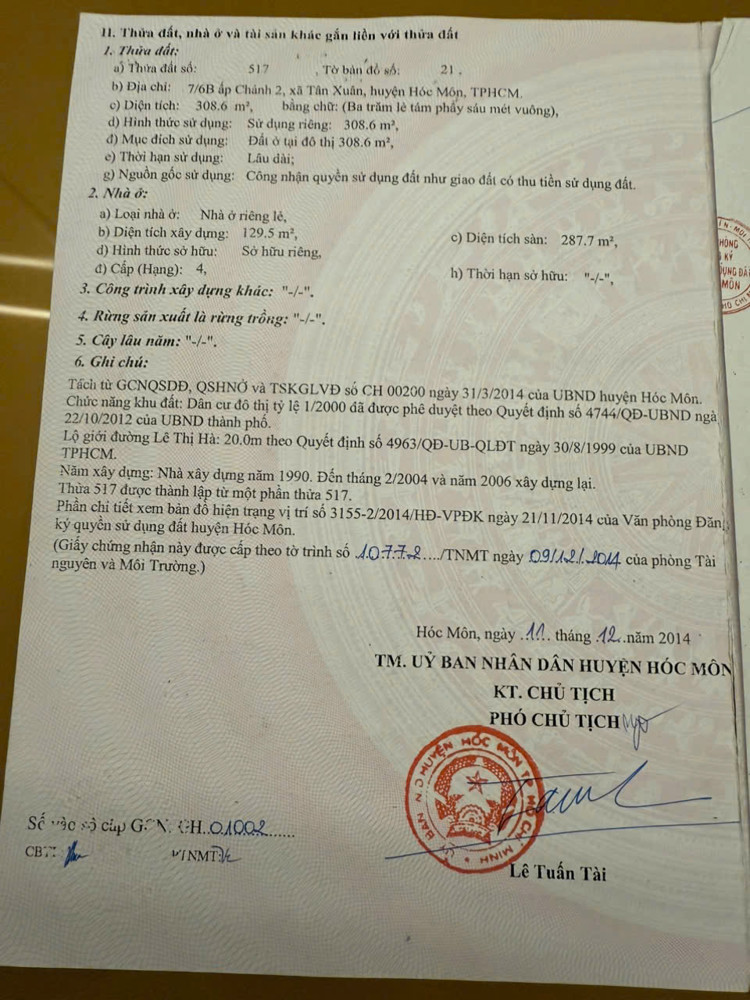 II. Thửa đất, nhà ở và tài sản khác gắn liền với thửa đất
1. Thửa đất:
a) Thửa đất số: 517 , Tờ bản đồ số: 21 ,
b) Địa chỉ: 7/6B ấp Chánh 2, xã Tân Xuân, huyện Hóc Môn, TPHCM.
c) Diện tích: 308.6 m², bằng chữ: (Ba trăm lẻ tám phẩy sáu mét vuông),
d) Hình thức sử dụng: Sử dụng riêng: 308.6 m²,
đ) Mục đích sử dụng: Đất ở tại đô thị 308.6 m²,
e) Thời hạn sử dụng: Lâu dài;
g) Nguồn gốc sử dụng: Công nhận quyền sử dụng đất như giao đất có thu tiền sử dụng đất.
2. Nhà ở:
a) Loại nhà ở: Nhà ở riêng lẻ,
b) Diện tích xây dựng: 129.5 m², c) Diện tích sàn: 287.7 m²,
d) Hình thức sở hữu: Sở hữu riêng,
đ) Cấp (Hạng): 4, h) Thời hạn sở hữu: "-/-",
3. Công trình xây dựng khác: "-/-".
4. Rừng sản xuất là rừng trồng: "-/-".
5. Cây lâu năm: "-/-".
6. Ghi chú:
Tách từ GCNQSDĐ, QSHNỞ và TSKGLVĐ số CH 00200 ngày 31/3/2014 của UBND huyện Hóc Môn.
Chức năng khu đất: Dân cư đô thị tỷ lệ 1/2000 đã được phê duyệt theo Quyết định số 4744/QĐ-UBND ngà
22/10/2012 của UBND thành phố.
Lộ giới đường Lê Thị Hà: 20.0m theo Quyết định số 4963/QĐ-UB-QLĐT ngày 30/8/1999 của UBND
TPHCM.
Năm xây dựng: Nhà xây dựng năm 1990. Đến tháng 2/2004 và năm 2006 xây dựng lại.
Thửa 517 được thành lập từ một phần thửa 517.
Phần chi tiết xem bản đồ hiện trạng vị trí số 3155-2/2014/HĐ-VPĐK ngày 21/11/2014 của Văn phòng Đăng
ký quyền sử dụng đất huyện Hóc Môn.
(Giấy chứng nhận này được cấp theo tờ trình số 10772..../TNMT ngày 09/12/2014 của phòng Tài
nguyên và Môi Trường.)
Hóc Môn, ngày .11. tháng .12..năm 2014
TM. UỶ BAN NHÂN DÂN HUYỆN HÓC MÔN
KT. CHỦ TỊCH
PHÓ CHỦ TỊCH
Lê Tuấn Tài
Số vào sổ cấp GCN: CH..01002......